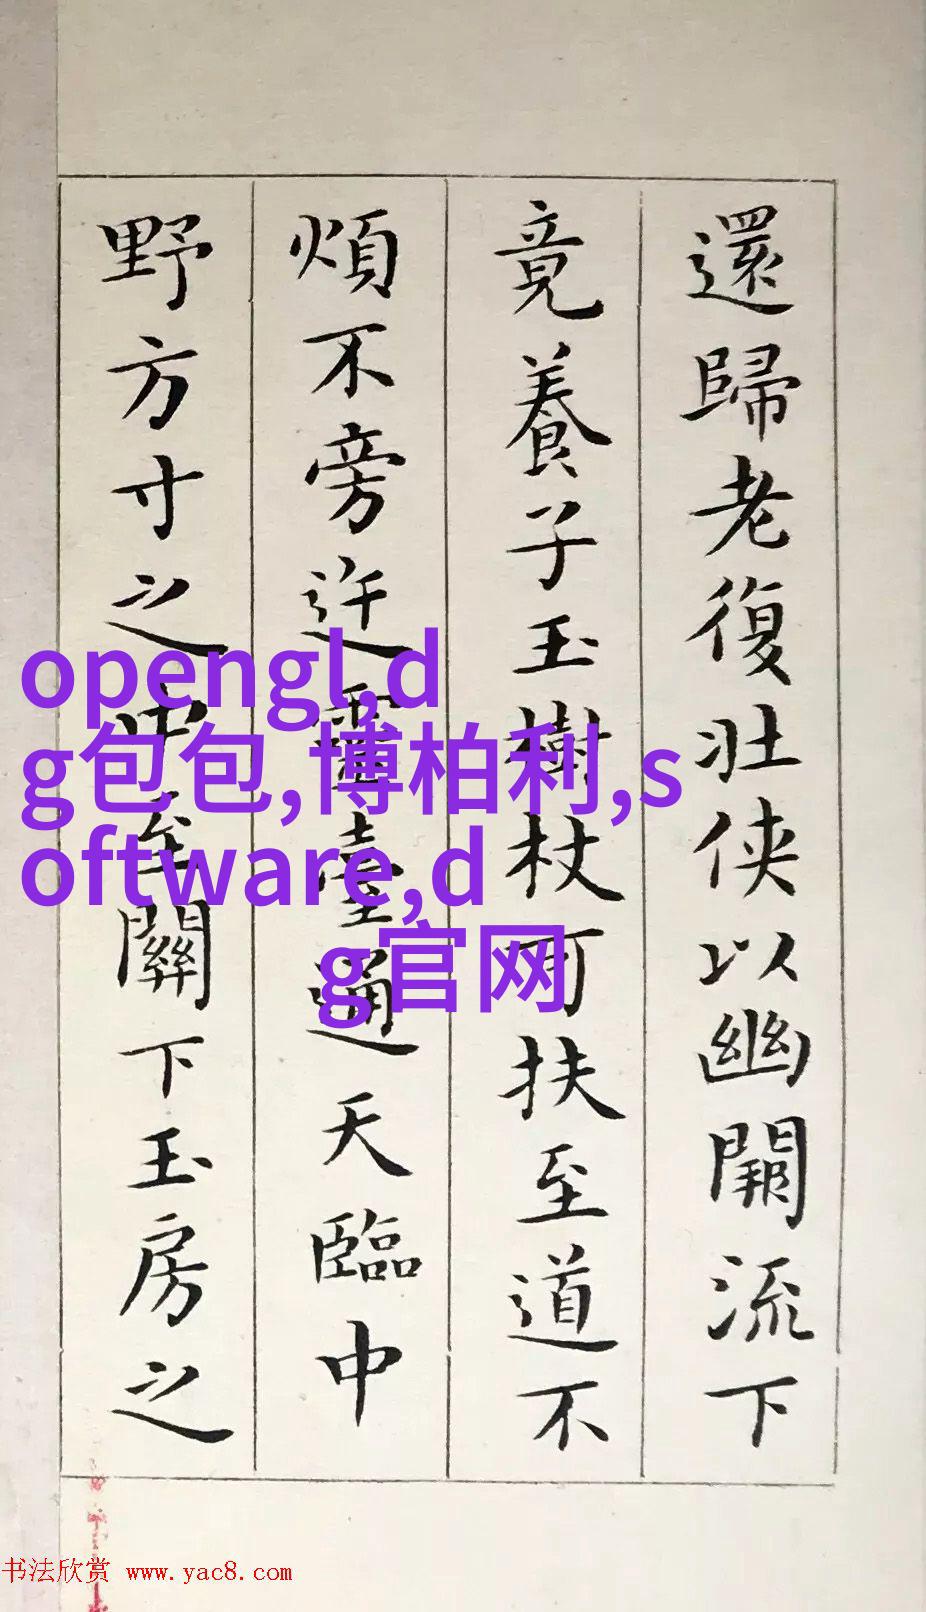 還歸老復壯侠以幽闕流下
竟養子玉樹杖可扶至道不
煩不旁迕靈臺通天臨中
野方寸之中至關下玉房之
opengl,d
g包包,博柏利,s
oftware,d
g官网
书法欣赏 www.yac8.com